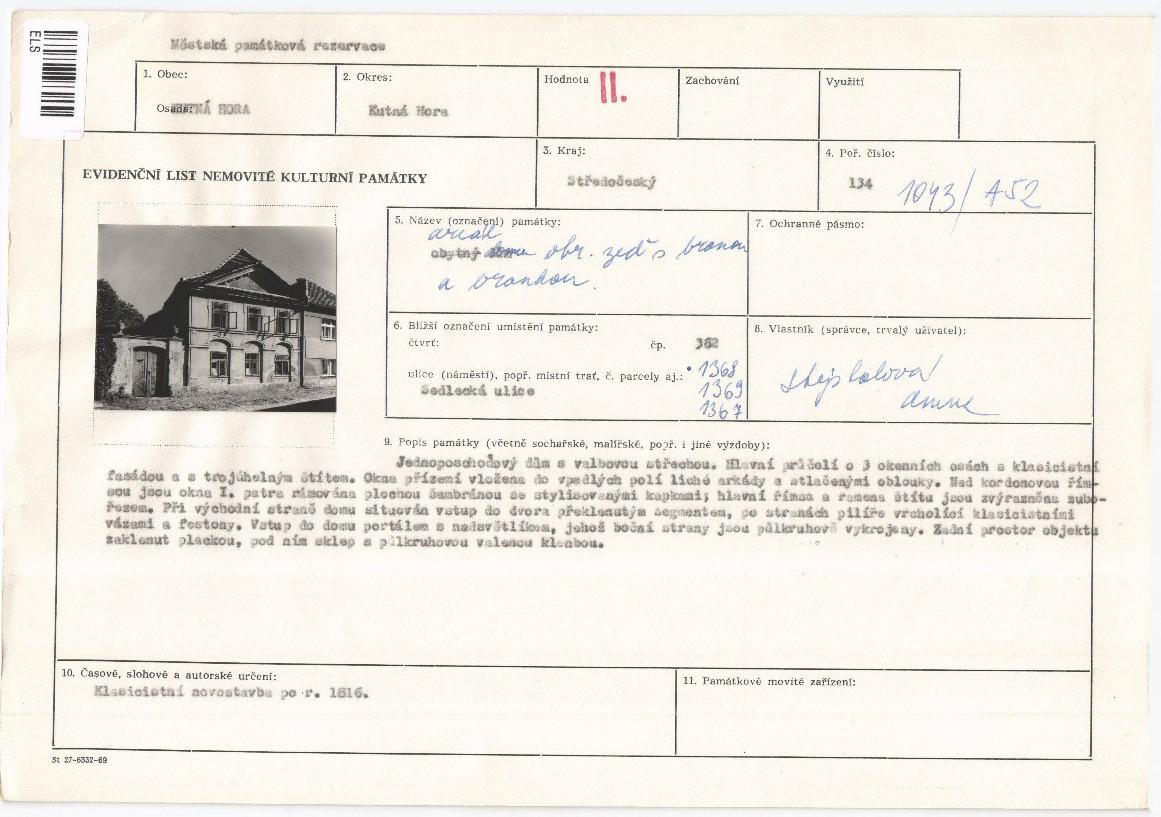 ELS
Městská památková rezervace
1. Obec:
Osada: KUTNÁ HORA
2. Okres:
Kutná Hora
Hodnota II.
Zachování
Využití
EVIDENČNÍ LIST NEMOVITÉ KULTURNÍ PAMÁTKY
3. Kraj:
Středočeský
4. Poř. číslo:
134 1043/A52
5. Název (označení) památky:
areál
obytný domu obr. zeď s branou
a brankou.
7. Ochranné pásmo:
6. Bližší označení umístění památky:
čtvrť: čp. 362
ulice (náměstí), popř. místní trať, č. parcely aj.: 1368
Sedlecká ulice 1369
1367
8. Vlastník (správce, trvalý uživatel):
9. Popis památky (včetně sochařské, malířské, popř. i jiné výzdoby):
Jednoposchodový dům s valbovou střechou. Hlavní průčelí o 3 okenních osách s klasicistní
fasádou a s trojúhelným štítem. Okna přízemí vložena do vpadlých polí liché arkády a stlačenými oblouky. Nad kordonovou řím-
sou jsou okna I. patra rámována plochou šambránou se stylisovanými kapkami; hlavní římsa a ramena štítu jsou zvýrazněna zubo-
řezem. Při východní straně domu situován vstup do dvora překlenutým segmentem, po stranách pilíře vrcholící klasicistními
vázami a festony. Vstup do domu portálem s nadsvětlíkem, jehož boční strany jsou půlkruhově vykrojeny. Zadní prostor objektu
zaklenut plackou, pod ním sklep s půlkruhovou valenou klenbou.
10. Časové, slohové a autorské určení:
Klasicistní novostavba po r. 1816.
11. Památkové movité zařízení:
St 27-6332-69